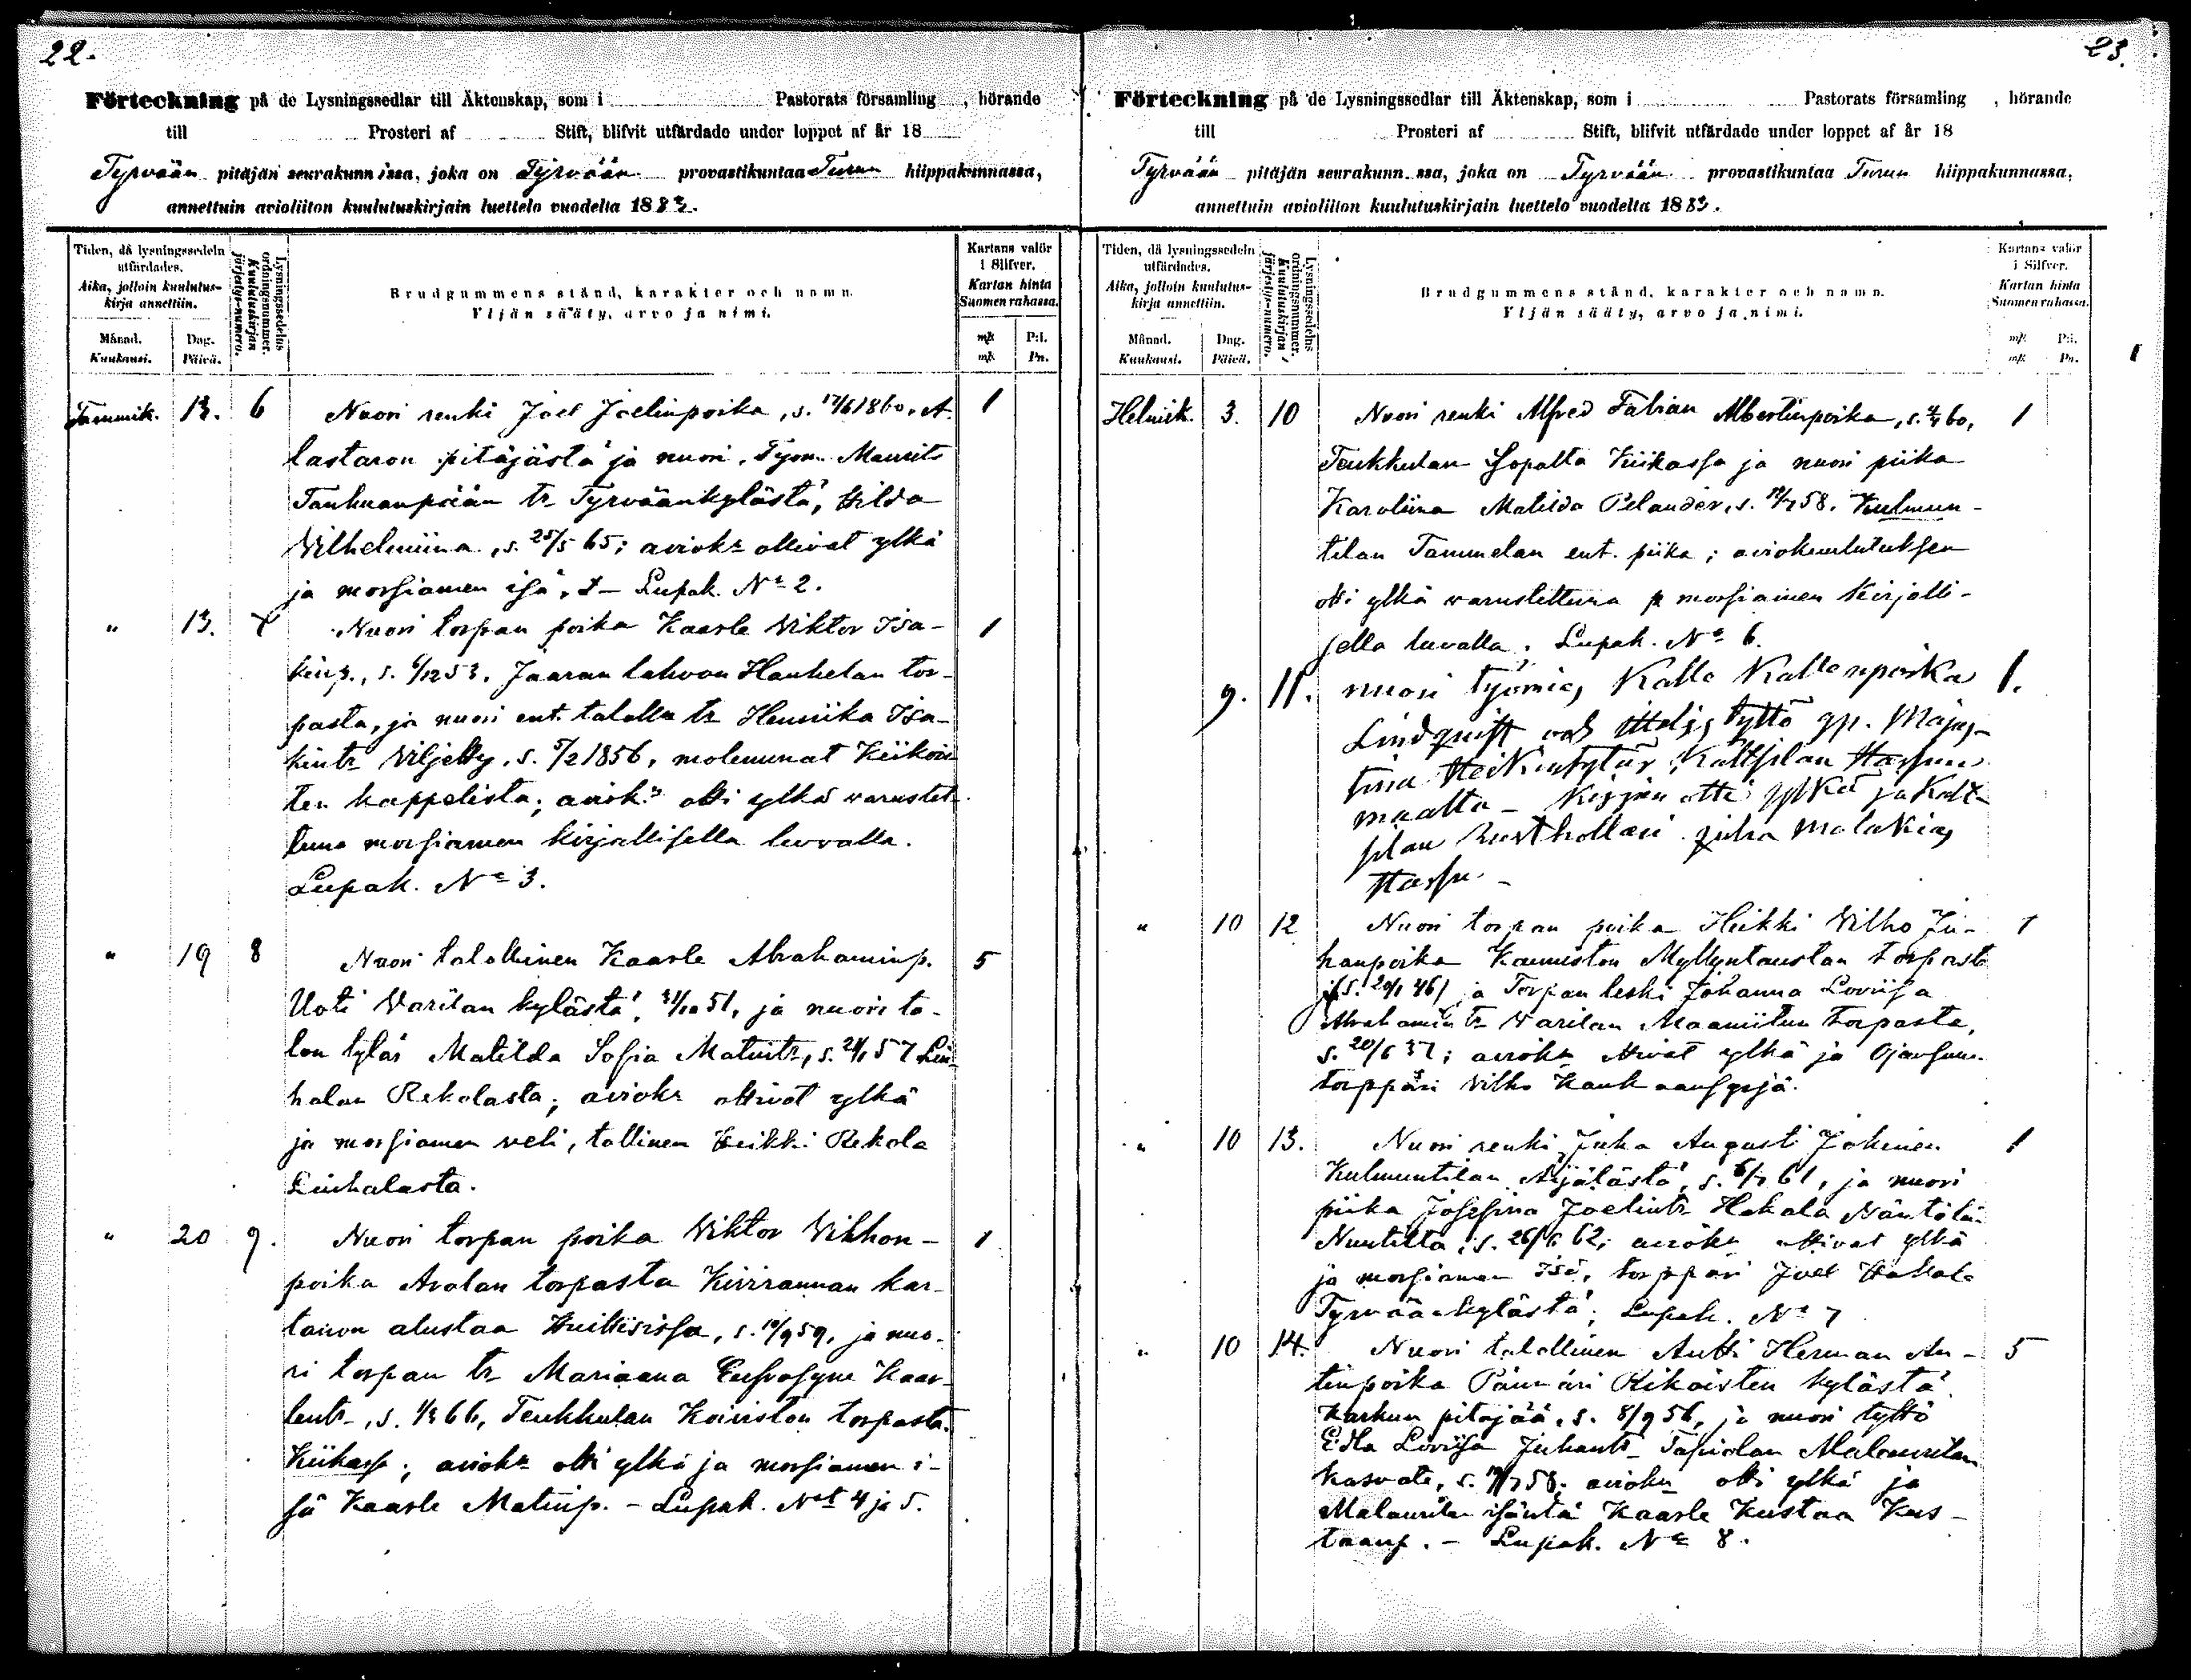 22.
Förteckning på de Lysningssedlar till Äktenskap, som i Pastorats församling , hörande
till Prosteri af Stift, blifvit utfärdade under loppet af år 18
Tyrvään pitäjän seurakunnissa, joka on Tyrvään provastikuntaa Turun hiippakunnassa,
annettuin avioliiton kuulutuskirjain luettelo vuodelta 1883.
Tiden, då lysningssedeln utfärdades.
Aika, jolloin kuulutuskirja annettiin.
Månad. Kuukausi.
Dag. Päivä.
Lysningssedelns ordningsnummer.
Kuulutuskirjan järjestys-numero.
Brudgummens stånd, karakter och namn.
Yljän sääty, arvo ja nimi.
Kartans valör i Silfver.
Kartan hinta Suomen rahassa.
mk P:i.
mk Pn.
Tammik. 13. 6 Nuori renki Joel Joelinpoika, s. 17/6 1860, A- 1
lastaron pitäjästä ja nuori, Työm. Maurits
Tanhuanpään tr Tyrväänkylästä, Hilda
Vilhelmiina, s. 25/5 65; aviok:n ottivat ylkä
ja morsiamen isä. Lupak. No 2.
" 13. 7 Nuori torpan poika Kaarle Viktor Isa- 1
kinp., s. 6/12 53, Jaaran lahvon Hankelan tor-
pasta, ja nuori ent. talolla tr Henriika Isa-
kintr Viljetty, s. 5/2 1856, molemmat Kiikois-
ten kappelista; aviok:n otti ylkä varustet-
tuna morsiamen kirjallisella luvalla.
Lupak. No 3.
" 19 8 Nuori talollinen Kaarle Abrahaminp. 5
Uoti Varilan kylästä, 31/10 51, ja nuori ta-
lon tytär Matilda Sofia Matintr, s. 21/1 57 Liu-
halan Rekolasta; aviok:n ottivat ylkä
ja morsiamen veli, tallinen Heikki Rekola
Liuhalasta.
" 20 9. Nuori torpan poika Viktor Vikhon- 1
poika Avolan torpasta Kivirannan kar-
tanon alustaa Huittisissa, s. 10/9 59, ja nuo-
ri torpan tr Mariaana Eufrosyne Kaar-
lentr, s. 1/3 66, Teukkulan Koiviston torpasta
Kiikassa; aviok:n otti ylkä ja morsiamen i-
sä Kaarle Matinp. - Lupak. No:t 4 ja 5.
23.
Förteckning på de Lysningssedlar till Äktenskap, som i Pastorats församling , hörande
till Prosteri af Stift, blifvit utfärdade under loppet af år 18
Tyrvään pitäjän seurakunn.ssa, joka on Tyrvään provastikuntaa Turun hiippakunnassa,
annettuin avioliiton kuulutuskirjain luettelo vuodelta 1883.
Tiden, då lysningssedeln utfärdades.
Aika, jolloin kuulutuskirja annettiin.
Månad. Kuukausi.
Dag. Päivä.
Lysningssedelns ordningsnummer.
Kuulutuskirjan järjestys-numero.
Brudgummens stånd, karakter och namn.
Yljän sääty, arvo ja nimi.
Kartans valör i Silfver.
Kartan hinta Suomen rahassa.
mk P:i.
mk Pn.
Helmik. 3. 10 Nuori renki Alfred Fabian Albertinpoika, s. 60, 1
Teukkulan Sopalta Kiikassa ja nuori piika
Karoliina Matilda Pelander, s. 58, Kulmun-
tilan Tammelan ent. piika; aviokuulutuksen
otti ylkä varustettuna morsiamen kirjalli-
sella luvalla. Lupak. No 6.
9. 11. nuori työmies Kalle Kallenpoika 1.
Lindquist och itellis tyttö yp. Majas-
tina Heikintytär, Kaltsilan Hassun
maalta - Kirjan otti ylkä ja Kalt-
silan Rusthollari Juha Malakias
Hassu. -
" 10 12 Nuori torpan poika Heikki Vilho Ju- 1
hanpoika Kaumiston Myllyntaustan torpasta
s. 20/1 46, ja Torpan leski Johanna Loviisa
Abrahamintr Varilan Maamiitun torpasta,
s. 20/6 37; aviok:n ottivat ylkä ja Ojansuun
torppari Vilho Kaukaansyrjä.
" 10 13. Nuori renki Juha Augusti Jokinen 1
Kulmuntilan Äijälästä, s. 61, ja nuori
piika Josefina Joelintr Hakala Näntölän
Nuutilta, s. 26/6 62; aviok:n ottivat ylkä
ja morsiamen isä, torppari Joel Hakala
Tyrväänkylästä; Lupak. No 7
" 10 14. Nuori talollinen Antti Herman An- 5
tinpoika Päinäri Rikaisten kylästä
Karkun pitäjää, s. 8/9 56, ja nuori tyttö
Edla Loviisa Juhantr Tapiolan Malaurilan
kasvate, s. 58; aviok:n otti ylkä ja
Malaurilan isäntä Kaarle Kustaa Kus-
taanp. - Lupak. No 8.